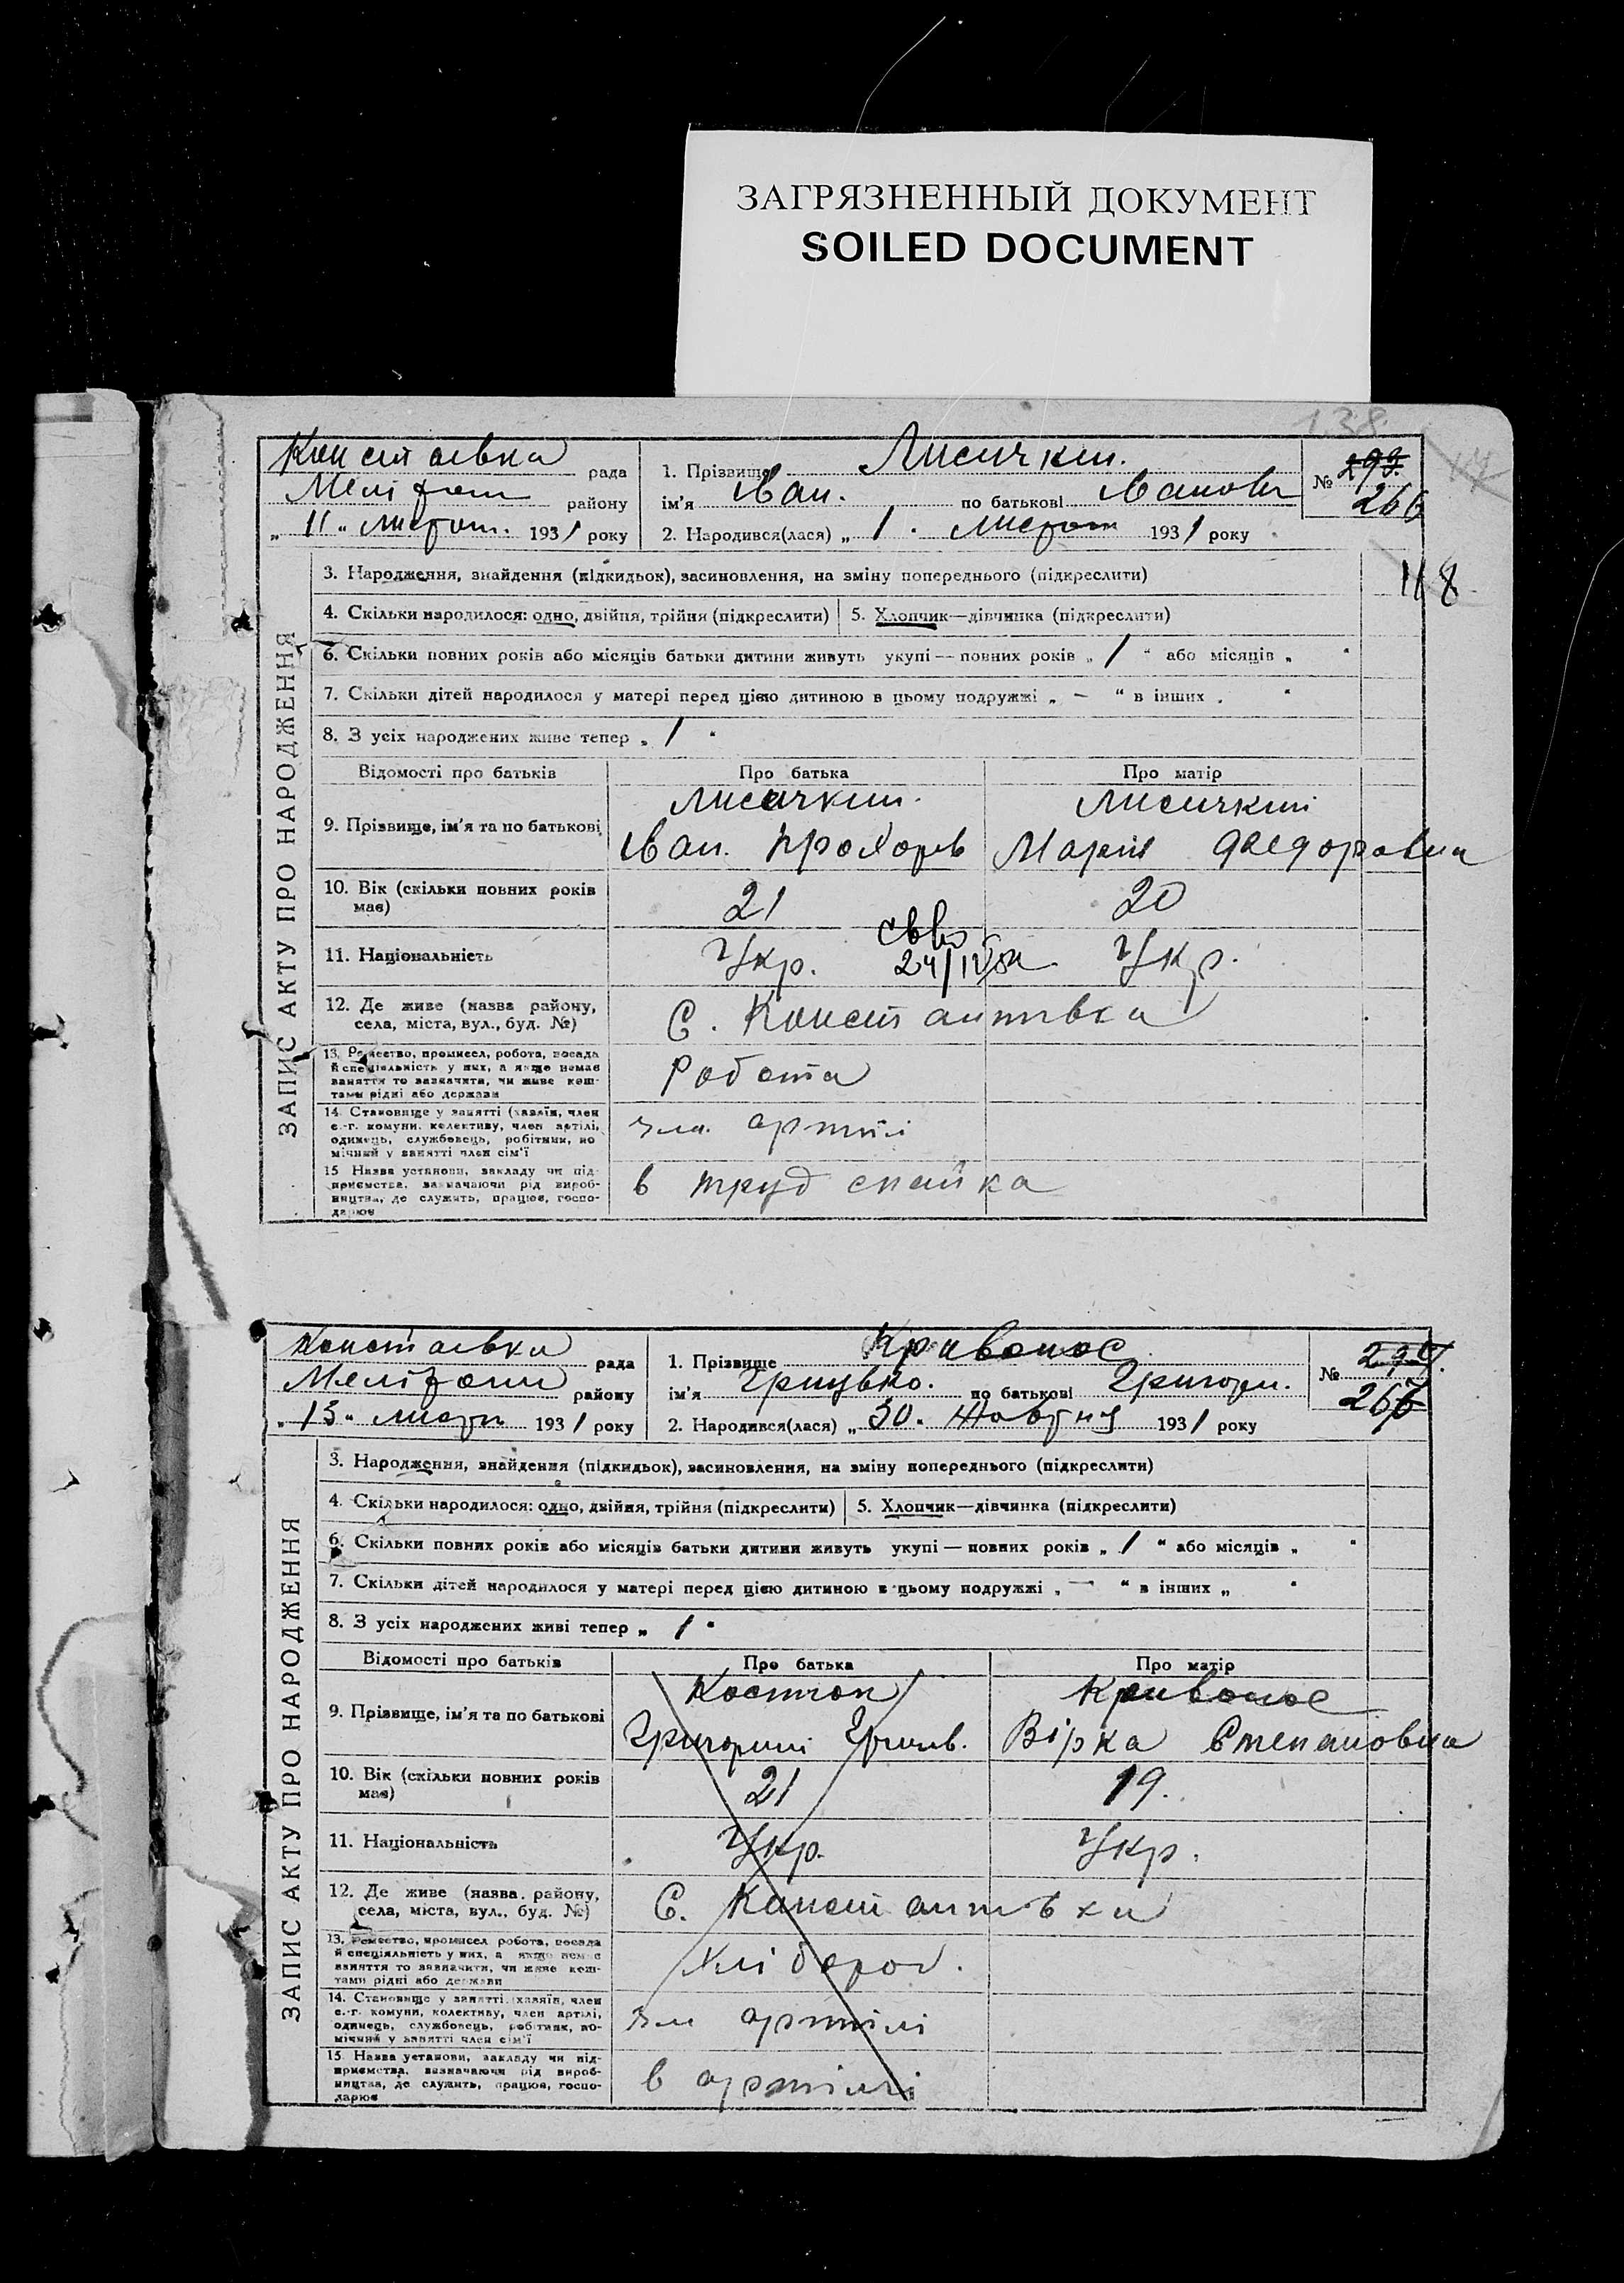 ЗАГРЯЗНЕННЫЙ ДОКУМЕНТ
SOILED DOCUMENT
138
118
ЗАПИС АКТУ ПРО НАРОДЖЕННЯ
рада
району
„ 11 „ 1931 року
1. Прізвище Лисичкин.
ім'я Іван. по батькові Іванович
2. Народився(лася) „ 1 . 1931 року
№ 293.
266
3. Народження, знайдення (підкидьок), засиновлення, на зміну попереднього (підкреслити)
4. Скільки народилося: одно, двійня, трійня (підкреслити) 5. Хлопчик—дівчинка (підкреслити)
6. Скільки повних років або місяців батьки дитини живуть укупі — повних років „ 1 “ або місяців „ “
7. Скільки дітей народилося у матері перед цією дитиною в цьому подружжі „ — “ в інших „ “
8. З усіх народжених живе тепер „ 1 “
Відомості про батьків Про батька Про матір
9. Прізвище, ім'я та по батькові
Лисичкин. Лисичкин
Іван. Прохорів Марія Федоровна
10. Вік (скільки повних років має) 21 20
11. Національність Укр. Укр.
12. Де живе (назва району, села, міста, вул., буд. №) С. Константивка
13. Ремество, промисел, робота, посада
й спеціяльність у них, а якщо немає
заняття то зазначити, чи живе кош-
тами рідні або держави
Робота
14. Становище у занятті (хазяїн, член
с.-г. комуни, колективу, член артілі,
одинець, службовець, робітник, по
мічний у занятті член сім'ї
чл. артілі
15 Назва установи, закладу чи під-
приємства, зазначаючи рід вироб-
ництва, де служить, працює, госпо-
дарює
в труд спайка
ЗАПИС АКТУ ПРО НАРОДЖЕННЯ
рада
району
„ 13 „ 1931 року
1. Прізвище Кривонос
ім'я по батькові
2. Народився(лася) „ 30 . Жовтня 1931 року
№ 294.
267
3. Народження, знайдення (підкидьок), засиновлення, на зміну попереднього (підкреслити)
4. Скільки народилося: одно, двійня, трійня (підкреслити) 5. Хлопчик—дівчинка (підкреслити)
6. Скільки повних років або місяців батьки дитини живуть укупі — повних років „ 1 “ або місяців „ “
7. Скільки дітей народилося у матері перед цією дитиною в цьому подружжі „ — “ в інших „ “
8. З усіх народжених живі тепер „ 1 “
Відомості про батьків Про батька Про матір
9. Прізвище, ім'я та по батькові
Кривонос
Григорий Вірка Степановна
10. Вік (скільки повних років має) 21 19.
11. Національність Укр. Укр.
12. Де живе (назва району, села, міста, вул., буд. №) С. Константівки
13. Ремество, промисел робота, посада
й спеціяльність у них, а якщо немає
заняття то зазначити, чи живе кош-
тами рідні або держави
Хлібороб.
14. Становище у занятті (хазяїн, член
с.-г. комуни, колективу, член артілі,
одинець, службовець, робітник, по-
мічний у занятті член сім'ї
чл артілі
15. Назва установи, закладу чи під-
приємства, зазначаючи рід вироб-
ництва, де служить, працює, госпо-
дарює
в артілі